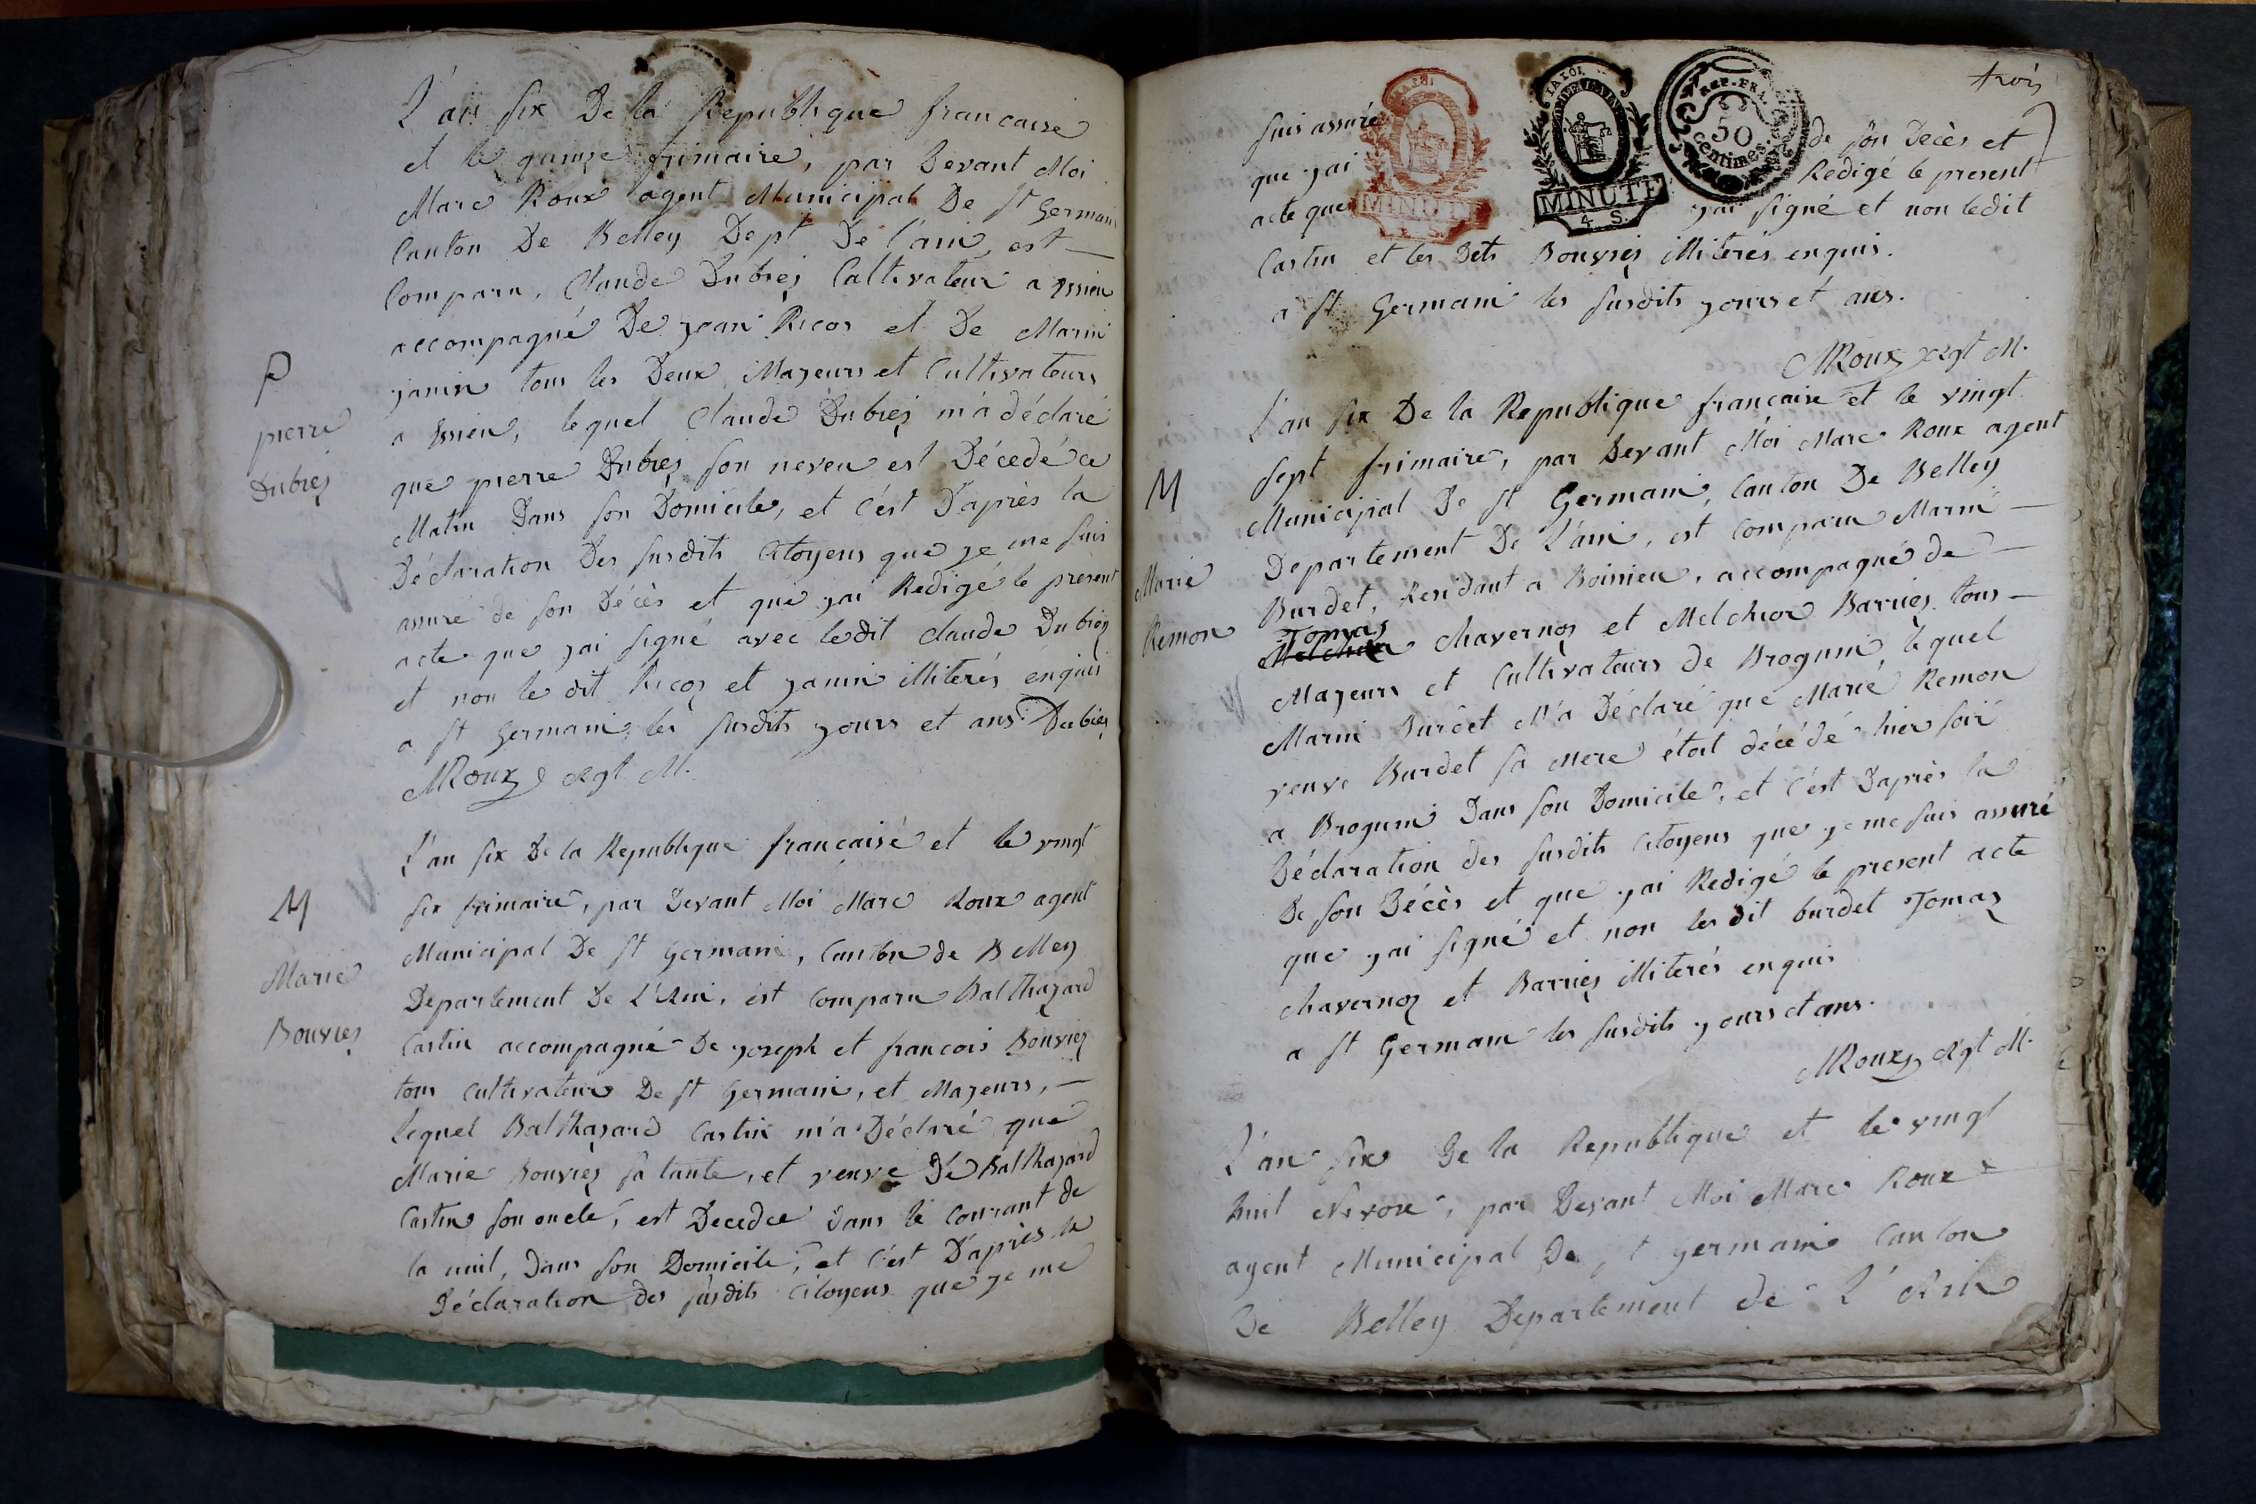 L'an six De la Republique francaise
et le quinze frimaire, par Devant Moi
Marc Roux agent Municipal De St Germain
Canton De Belley Dept De l'ain, est
Comparu, Claude Dubiez Cultivateur a Essieu
accompagné De jean Ricoz et De Marin
janin tous les Deux Majeurs et Cultivateurs
a Essieu, lequel Claude Dubiez m'a déclaré
P
pierre
Dubiez
que pierre Dubiez son neveu est Décedé ce
Matin Dans son Domicile, et c'est D'après la
Déclaration Des susdits Citoyens que je me suis
assuré de son Décès et que jai Redigé le present
acte que jai signé avec ledit claude Dubiez
et non le dit Ricoz et janin illiterés enquis
a St Germain les susdits jours et ans Dubiez
MRoux Agt M.
L'an six De la Republique francaise et le vingt
six frimaire, par Devant Moi Marc Roux agent
Municipal De St Germain, Canton de Belley
M
Marie
Bouvier
Departement De L'Ain, est Comparu Balthazard
Castin accompagné De joseph et francois Bouvier
tous Cultivateurs De St Germain, et Majeurs,
lequel Balthazard Castin m'a Déclaré que
Marie Bouvier sa tante, et veuve De Balthazard
Castin son oncle, est Decedee Dans le Courant de
la nuit, Dans son Domicile, et c'est D'après la
Déclaration des susdits Citoyens que je me
trois
suis assuré de son Decès et
que jai Redigé le present
acte que jai signé et non ledit
Castin et les Dets Bouvier illiterés enquis.
a St Germain les susdits jours et ans.
MRoux Agt M.
LA LOI
MINUTE
MINUTE
4. S.
REP. FRA.
50
Centimes
L'an six De la Republique francaise et le vingt
sept frimaire, par Devant Moi Marc Roux agent
Municipal De St Germain, Canton De Belley
M
Marie
Remon
Departement De L'ain, est Comparu Marin
Burdet, Residant a Boissieu, accompagné de
Tomas
Melchior Chavernoz et Melchior Barriez tous
Majeurs et Cultivateurs de Brognin, lequel
Marin Burdet M'a Déclaré que Marie Remon
veuve Burdet sa Mere étoit décédé hier soir
a Brognin Dans son Domicile, et c'est D'après la
Déclaration des susdits Citoyens que je me suis assuré
De son Décès et que jai Redigé le present acte
que jai signé et non les dit burdet Tomas
Chavernoz et Barriez illiterés enquis
a St Germain les susdits jours et ans.
MRoux Agt M.
L'an six De la Republique et le vingt
huit Nivose, par Devant Moi Marc Roux
agent Municipal De St germain Canton
De Belley Departement de L'Ain